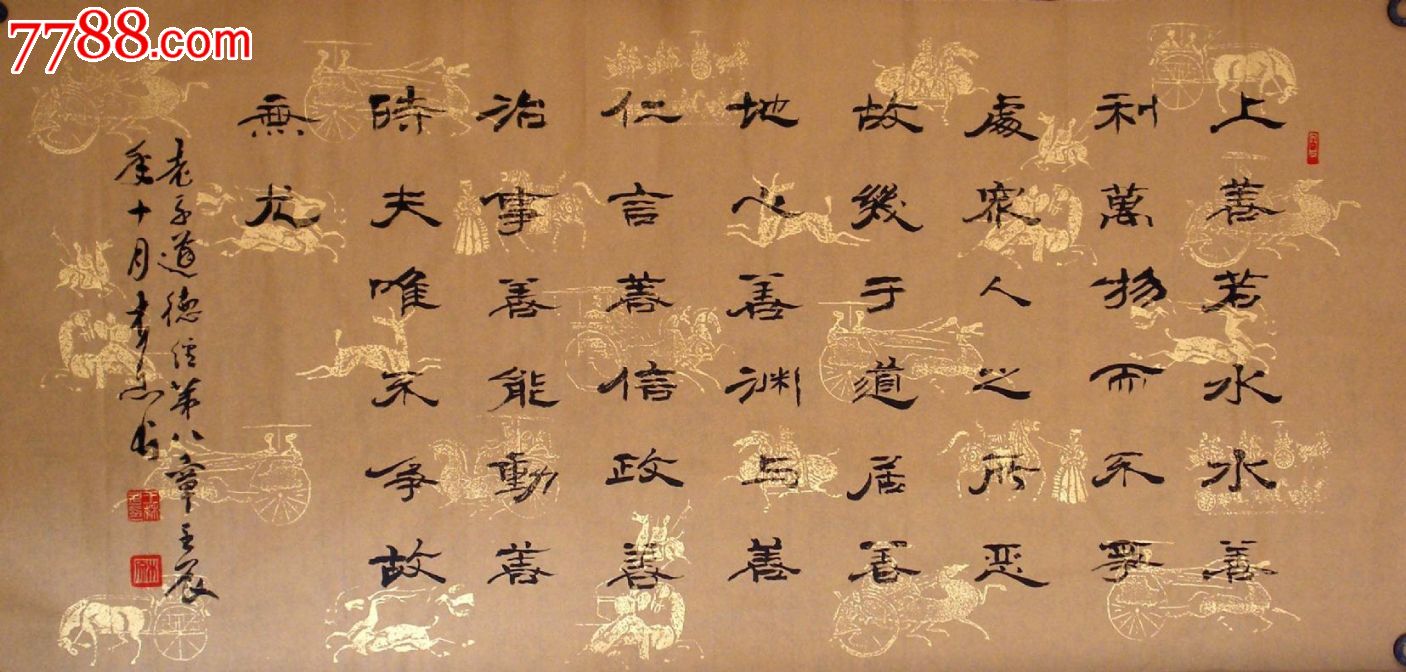 7788.com
上善若水水善
利萬物而不爭
處眾人之所恶
故幾于道居善
地心善渊与善
仁言善信政善
治事善能動善
時夫唯不争故
無尤
老子道德经第八章壬辰
年十月李书